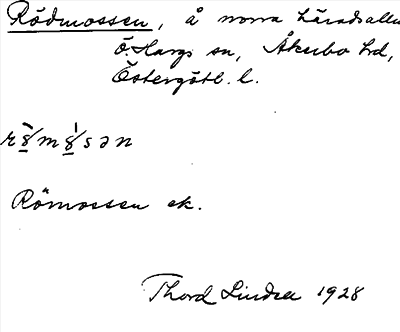 Rödmossen, å norra häradsallm
Ö. Hargs sn, Åkerbo hd,
Östergötl. l.
Römossen ek.
Thord Lindsa 1928